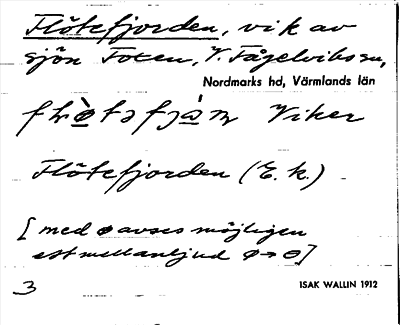 Flötefjorden, vik av
sjön Foxen, V. Fågelviks sn,
Nordmarks hd, Värmlands län
Viker
Flötefjorden (E. k.)
[med ø avses möjligen
ett mellanljud ø → ө]
3
ISAK WALLIN 1912